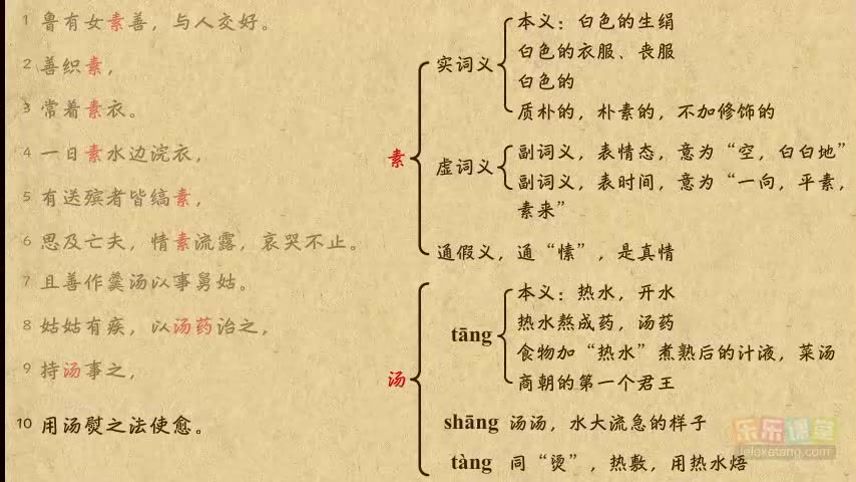 1 鲁有女素善，与人交好。
2 善织素，
3 常着素衣。
4 一日素水边浣衣，
5 有送殡者皆缟素，
6 思及亡夫，情素流露，哀哭不止。
7 且善作羹汤以事舅姑。
8 姑姑有疾，以汤药治之，
9 持汤事之，
10 用汤熨之法使愈。
素
实词义
本义：白色的生绢
白色的衣服、丧服
白色的
质朴的，朴素的，不加修饰的
虚词义
副词义，表情态，意为“空，白白地”
副词义，表时间，意为“一向，平素，
素来”
通假义，通“愫”，是真情
汤
tāng
本义：热水，开水
热水熬成药，汤药
食物加“热水”煮熟后的汁液，菜汤
商朝的第一个君王
shāng 汤汤，水大流急的样子
tàng 同“烫”，热敷，用热水焐
乐乐课堂
leleketang.com